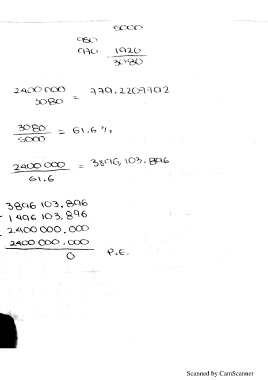 5000
950
970 1920
3080
2400 000
3080 = 779.2207792
3080
5000 = 61.6 %
2400 000 = 3896,103.896
61.6
3896 103.896
- 1496 103.896
2400 000.000
- 2400 000.000
0 P.E.
Scanned by CamScanner